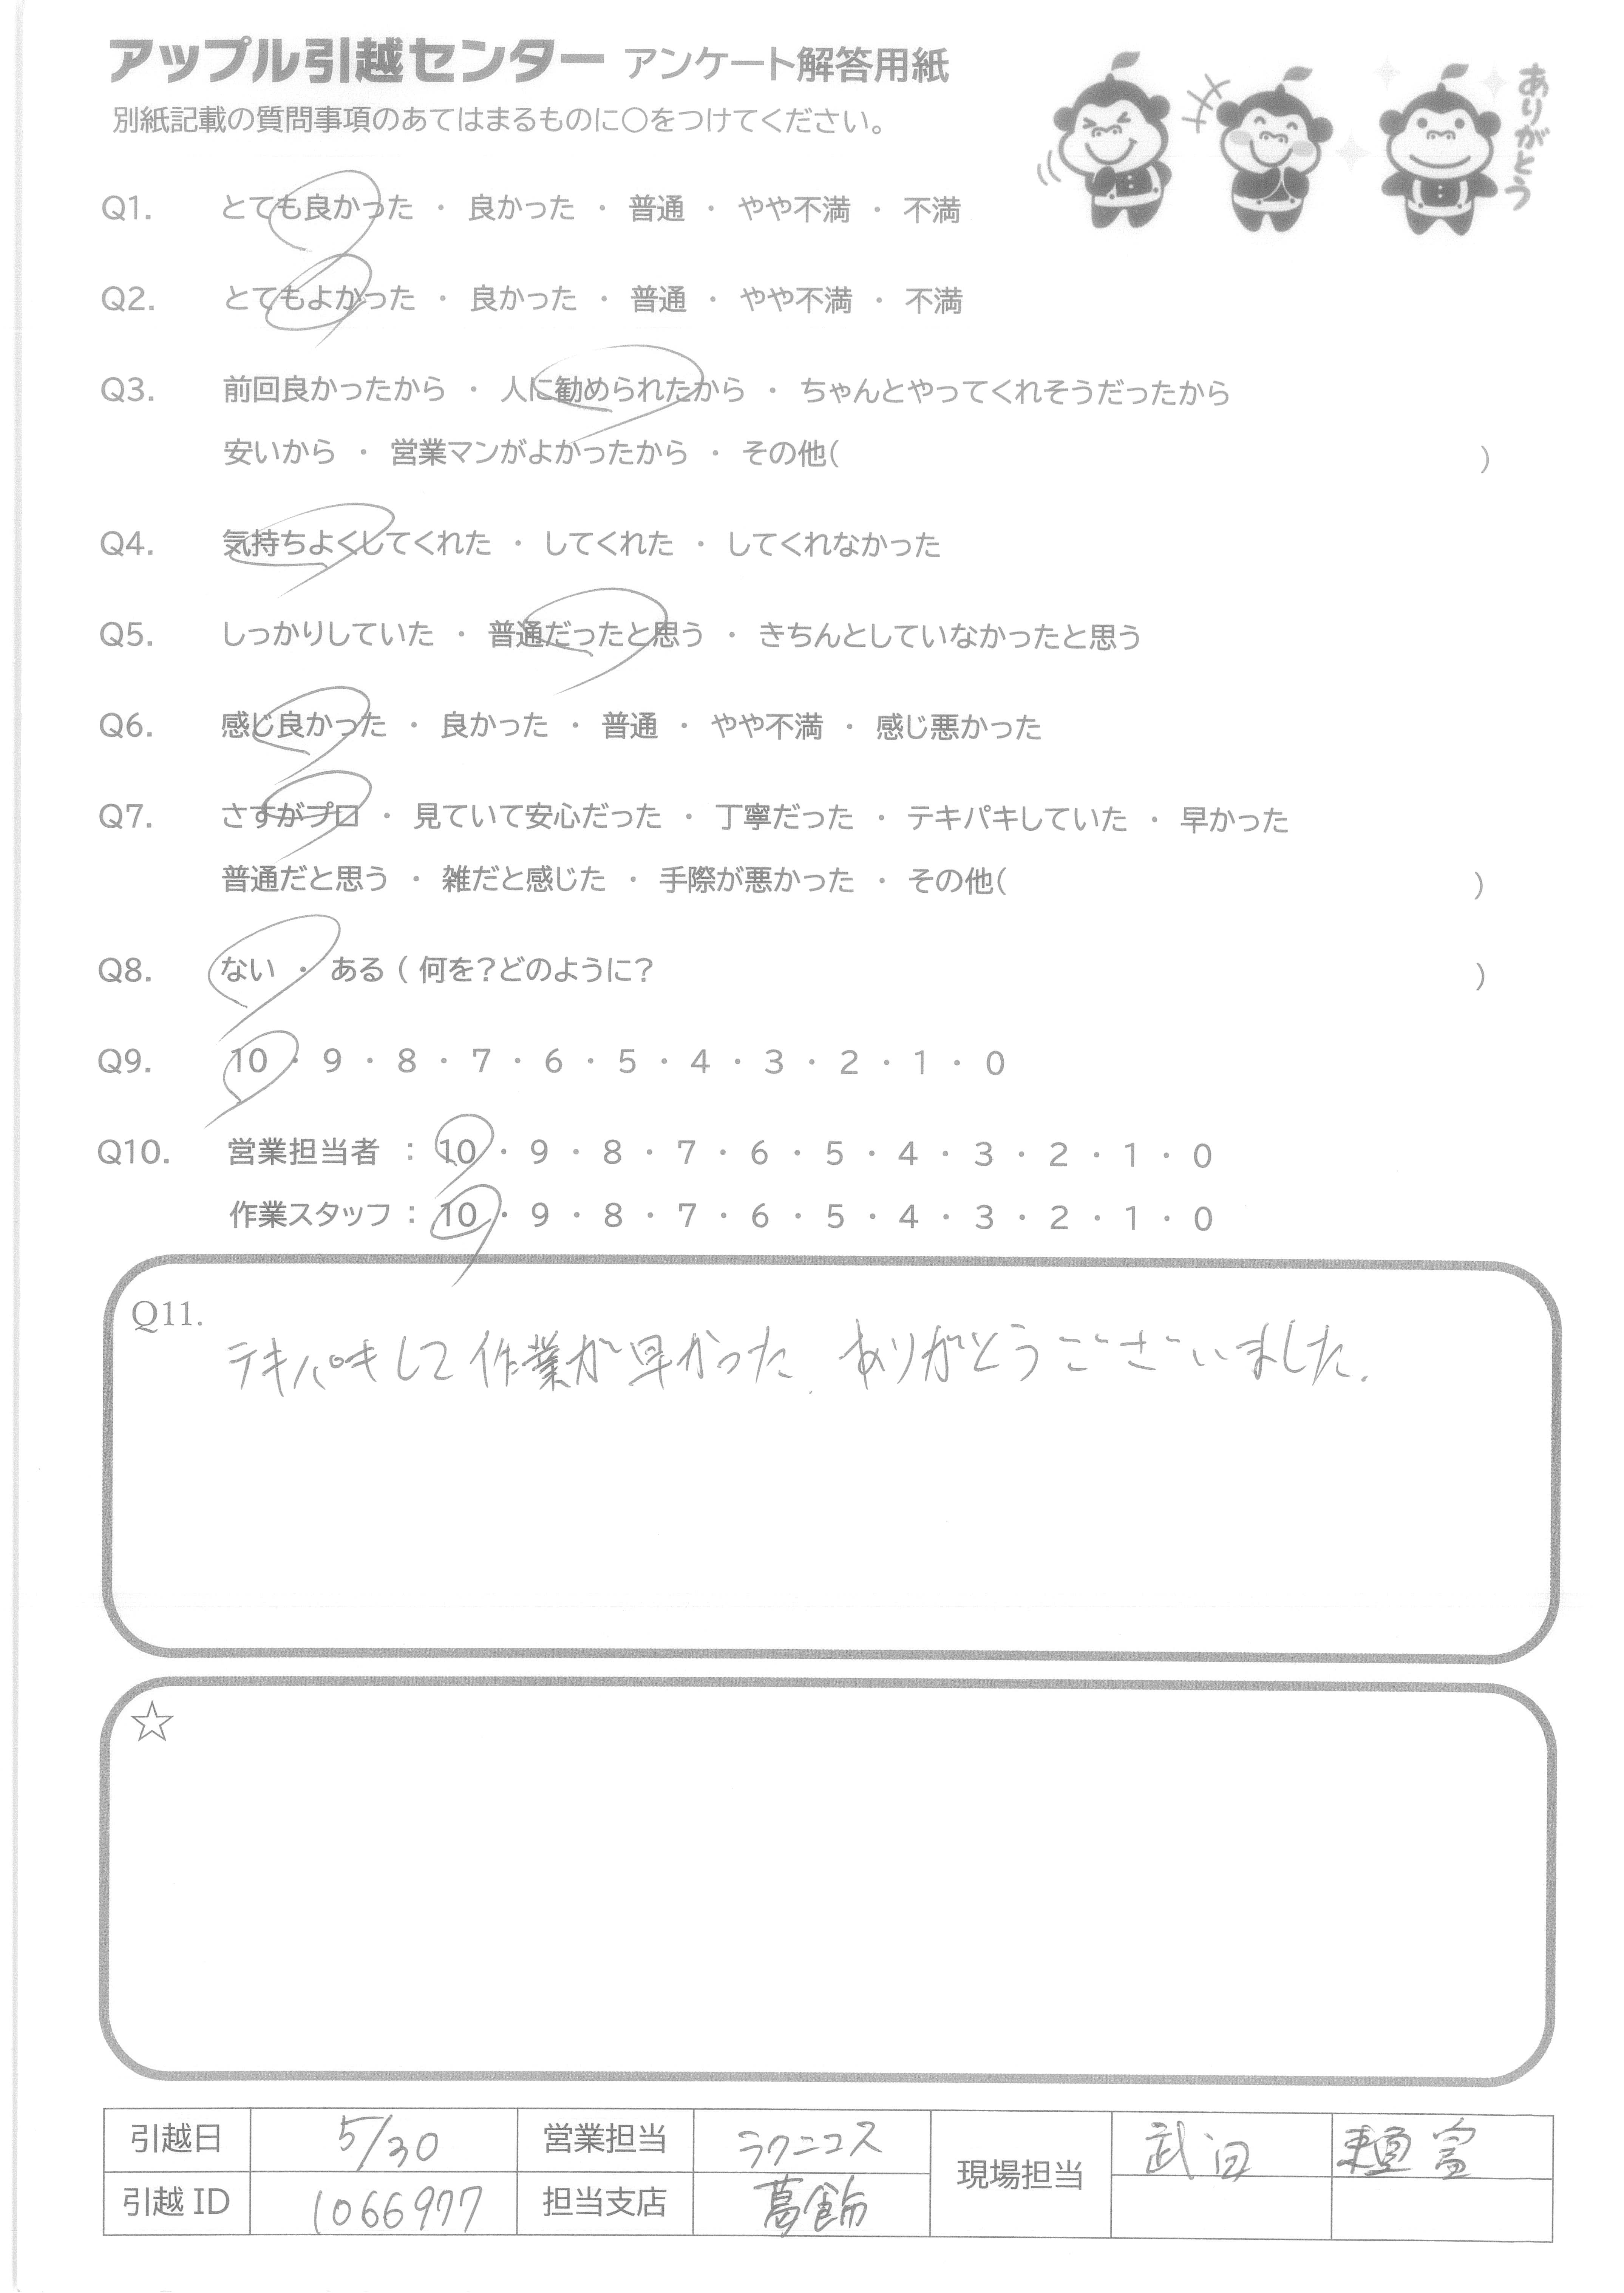 アップル引越センター アンケート解答用紙
別紙記載の質問事項のあてはまるものに○をつけてください。
ありがとう
Q1. とても良かった ・ 良かった ・ 普通 ・ やや不満 ・ 不満
Q2. とてもよかった ・ 良かった ・ 普通 ・ やや不満 ・ 不満
Q3. 前回良かったから ・ 人に勧められたから ・ ちゃんとやってくれそうだったから
安いから ・ 営業マンがよかったから ・ その他( )
Q4. 気持ちよくしてくれた ・ してくれた ・ してくれなかった
Q5. しっかりしていた ・ 普通だったと思う ・ きちんとしていなかったと思う
Q6. 感じ良かった ・ 良かった ・ 普通 ・ やや不満 ・ 感じ悪かった
Q7. さすがプロ ・ 見ていて安心だった ・ 丁寧だった ・ テキパキしていた ・ 早かった
普通だと思う ・ 雑だと感じた ・ 手際が悪かった ・ その他( )
Q8. ない ・ ある ( 何を?どのように? )
Q9. 10 ・ 9 ・ 8 ・ 7 ・ 6 ・ 5 ・ 4 ・ 3 ・ 2 ・ 1 ・ 0
Q10. 営業担当者 : 10 ・ 9 ・ 8 ・ 7 ・ 6 ・ 5 ・ 4 ・ 3 ・ 2 ・ 1 ・ 0
作業スタッフ : 10 ・ 9 ・ 8 ・ 7 ・ 6 ・ 5 ・ 4 ・ 3 ・ 2 ・ 1 ・ 0
Q11.
テキパキして作業が早かった. ありがとうございました.
☆
引越日 5/30 営業担当 ラクニコス 現場担当 武田
引越 ID 1066977 担当支店 葛飾